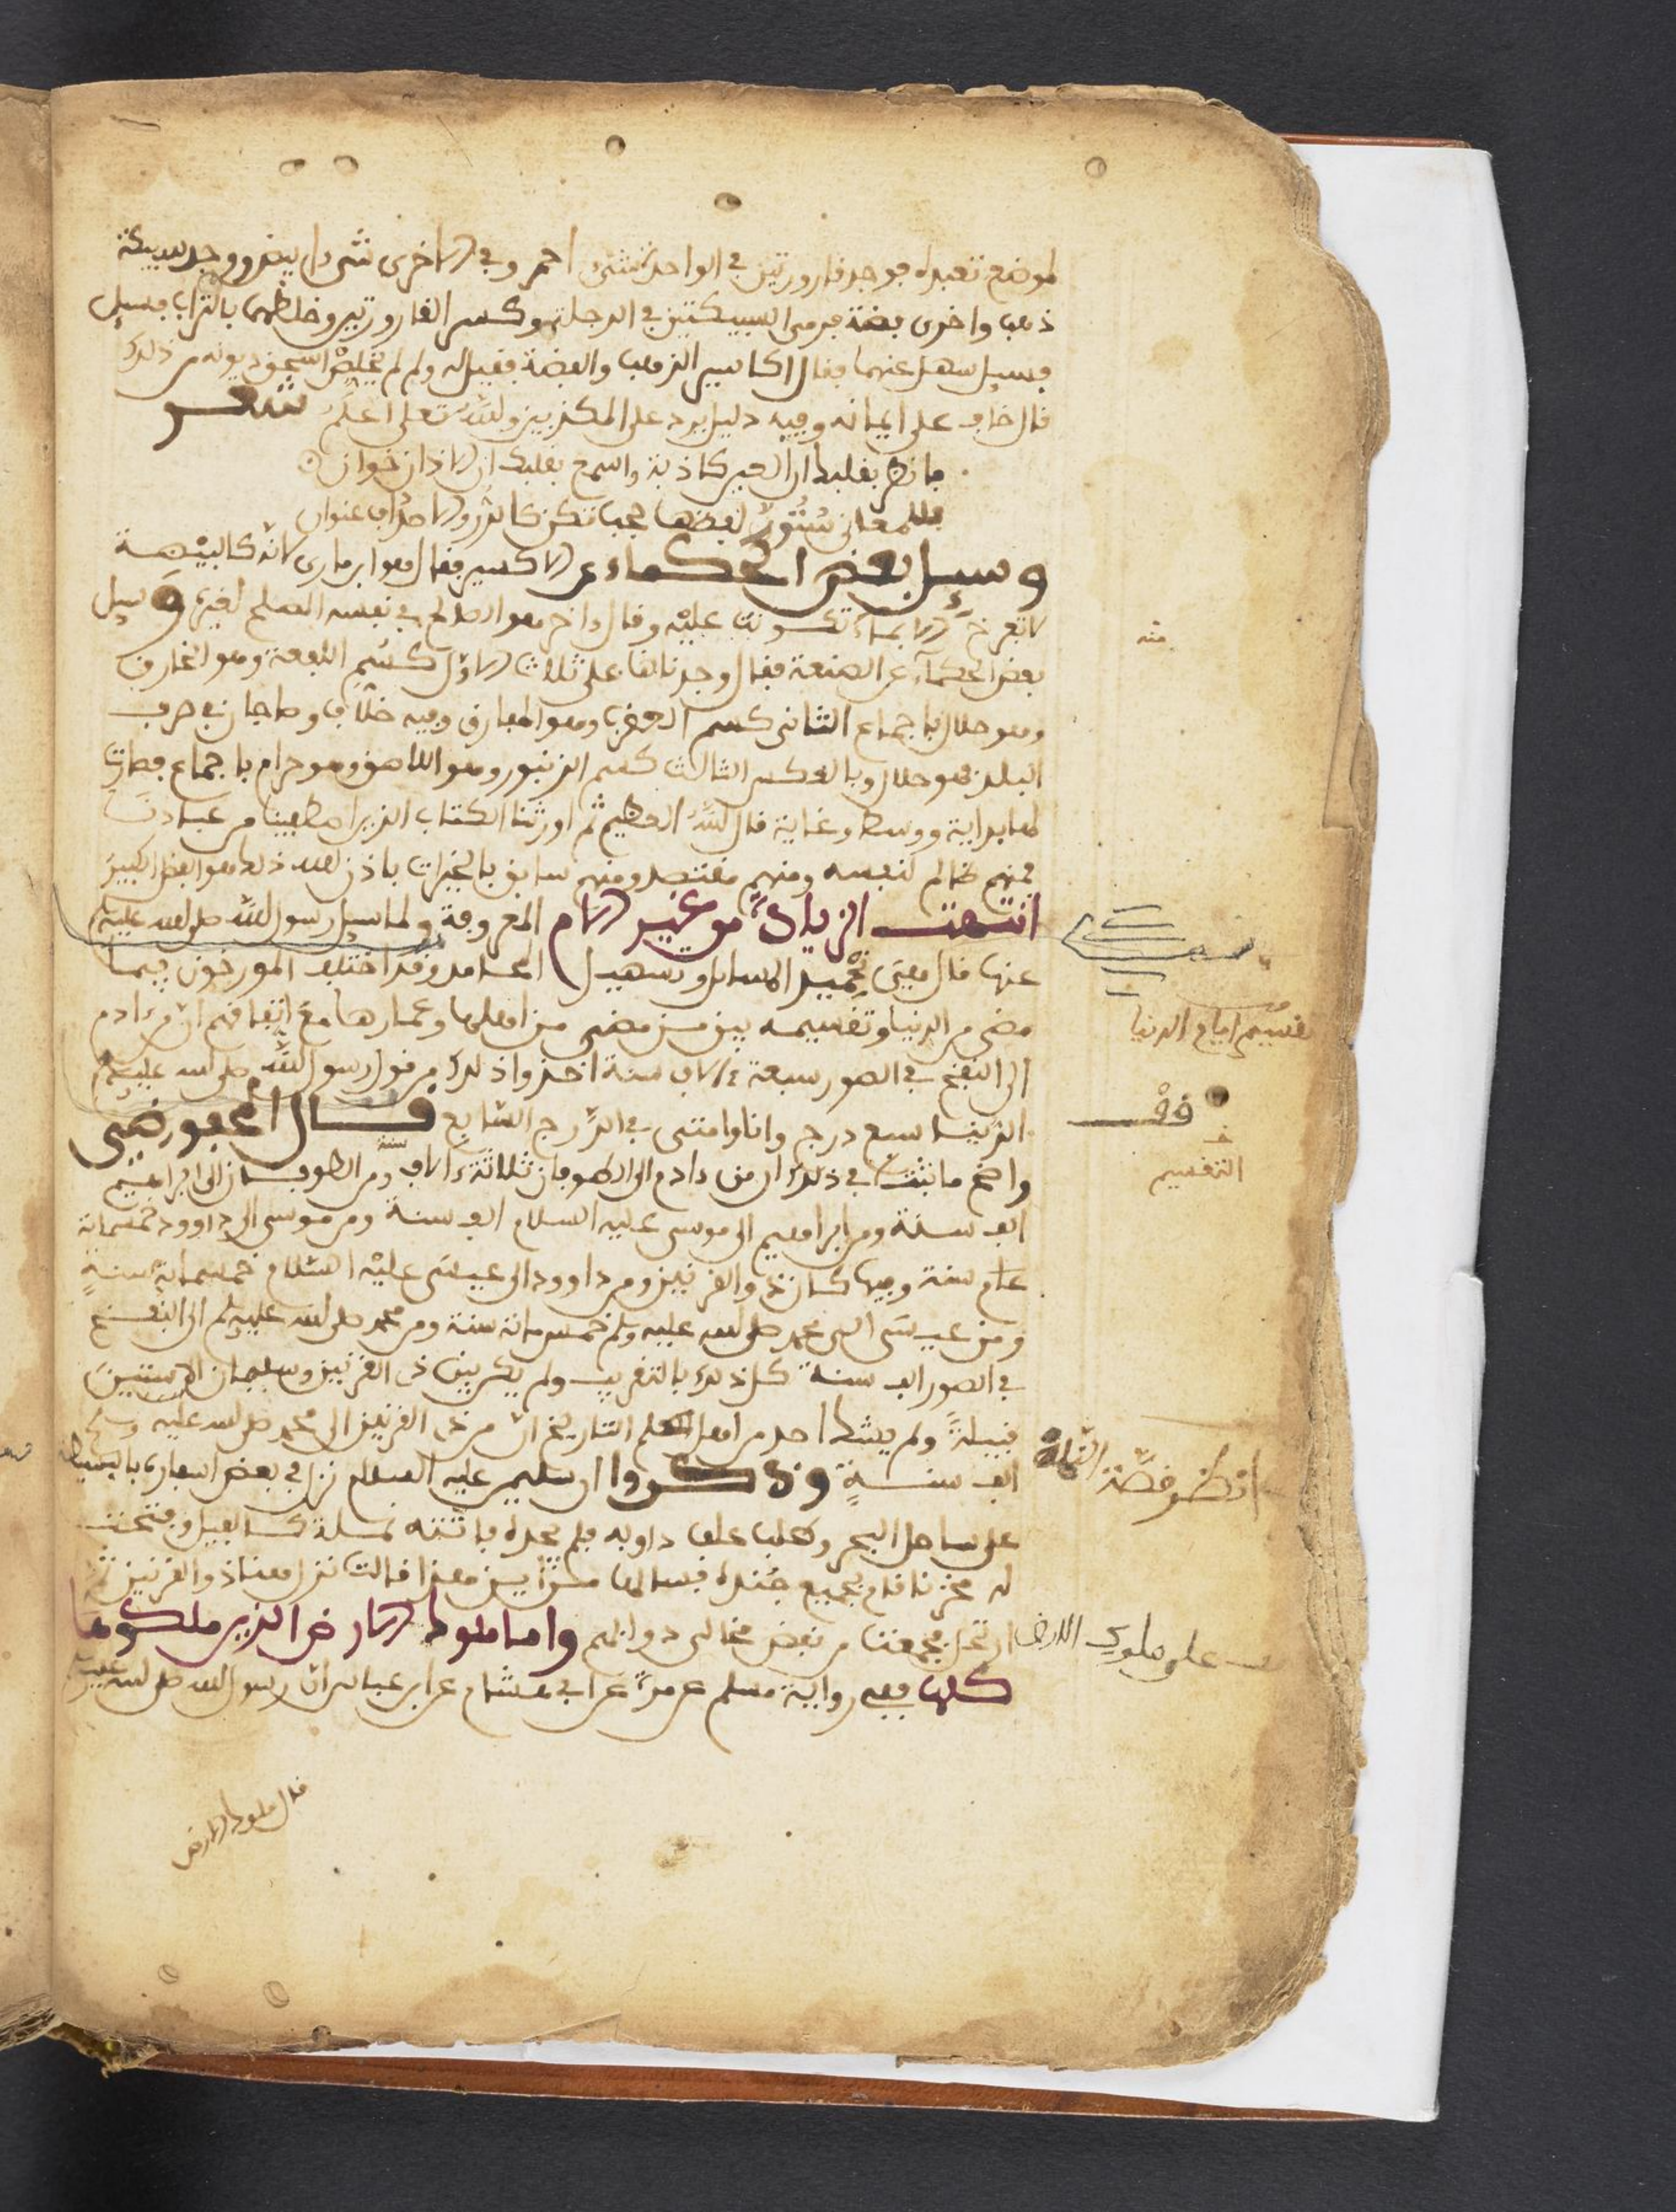 لموضع تعبده فوجد قارورتين في الواحدة شيء احمر وفي الاخرى شيء ابيض ووجد سبيكة
ذهب واخرى فضة فرمى السبيكتين في الدجلة وكسر القارورتين وخلطهما بالتراب فسيل
فسيل سهل عنهما فقال اكاسير الذهب والفضة فقيل له ولم لم يخلص اسحق ديونه من ذلك
قال خاف على ايمانه وفيه دليل يرد على المكذبين والله تعلى اعلم شعر
فانظر بقلبك ان العين كاذبة واسمع بقلبك ان الاذان خوان
فللمعاني لبعضها عنوان
وسيل بعض الحكماء عن الاكسير فقال هو ابرماري لانه كالبيضة
لا تفرخ الا بما تكونت عليه وقال واخر هو الصالح في نفسه المصلح لغيره وسيل
بعض الحكماء عن الصنعة فقال وجدناها على ثلاث الاول كسم اللفعة وهو الخارق
وهو حلال باجماع الثاني كسم العقرب وهو المفارق وفيه خلاف وما جاز في صرف
البلد فهو حلال وبالعكس الثالث كسم الزنبور وهو اللاصق وهو حرام باجماع فصارت
لها بداية ووسط وغاية قال الله العظيم ثم اورثنا الكتاب الذين اصطفينا من عبادنا
فمنهم ظالم لنفسه ومنهم مقتصد ومنهم سابق بالخيرات باذن الله ذلك هو الفضل الكبير
انتهت الزيادة من غير الام المعروفة ولما سيل رسول الله صلى الله عليه
عنها قال ففي تحميد المسايل وتسهيل المحامد وقد اختلف المورخون فيما
مضى من الدنيا وتقسيمه بين من مضى من اهلها وعمارها مع اتفاقهم ان من ءادم
الى النفخ في الصور سبعة ءالاف سنة اخذوا ذلك من قول رسول الله صلى الله عليه وسلم
الدنيا سبع درج وانا وامتي في الدرج السابع قال المجبورضي
واصح ما ثبت في ذلك ان من ءادم الى الطوفان ثلاثة ءالاف سنة ومن الطوفان الى ابراهيم
الف سنة ومن ابراهيم الى موسى عليه السلام الف سنة ومن موسى الى داوود خمسمائة
عام سنة وفيها كان ذو القرنين ومن داوود الى عيسى عليه السلام خمسمائة سنة
ومن عيسى الى محمد صلى الله عليه وسلم خمس مائة سنة ومن محمد صلى الله عليه وسلم الى النفخ
في الصور الف سنة كل ذلك بالتقريب ولم يكن بين ذي القرنين وسليمان الا سنين
قليلة ولم يشك احد من اهل العلم التاريخ ان من ذي القرنين الى محمد صلى الله عليه وسلم
الف سنة وذكروا ان سليمن عليه السلام نزل في بعض اسفاره بالبساط
على ساحل البحر وطلب علف دوابه فلم يجده فاتته نملة كالفيل وفتحت
له مخزنا قام بجميع جنده فسالها من اين هذا قالت نزل هنا ذو القرنين ثم
ارتحل فجمعنا من بعض مخالى دوابهم واما ملوك الارض الذين ملكوها
كلها ففي رواية مسلم عن مرة عن ابي هشام عن ابن عباس ان رسول الله صلى الله عليه وسلم
قال ملوك الارض
منه
تقسيم ايام الدنيا
قف
التقسيم
انظر قصة النملة
على ملوك الارض